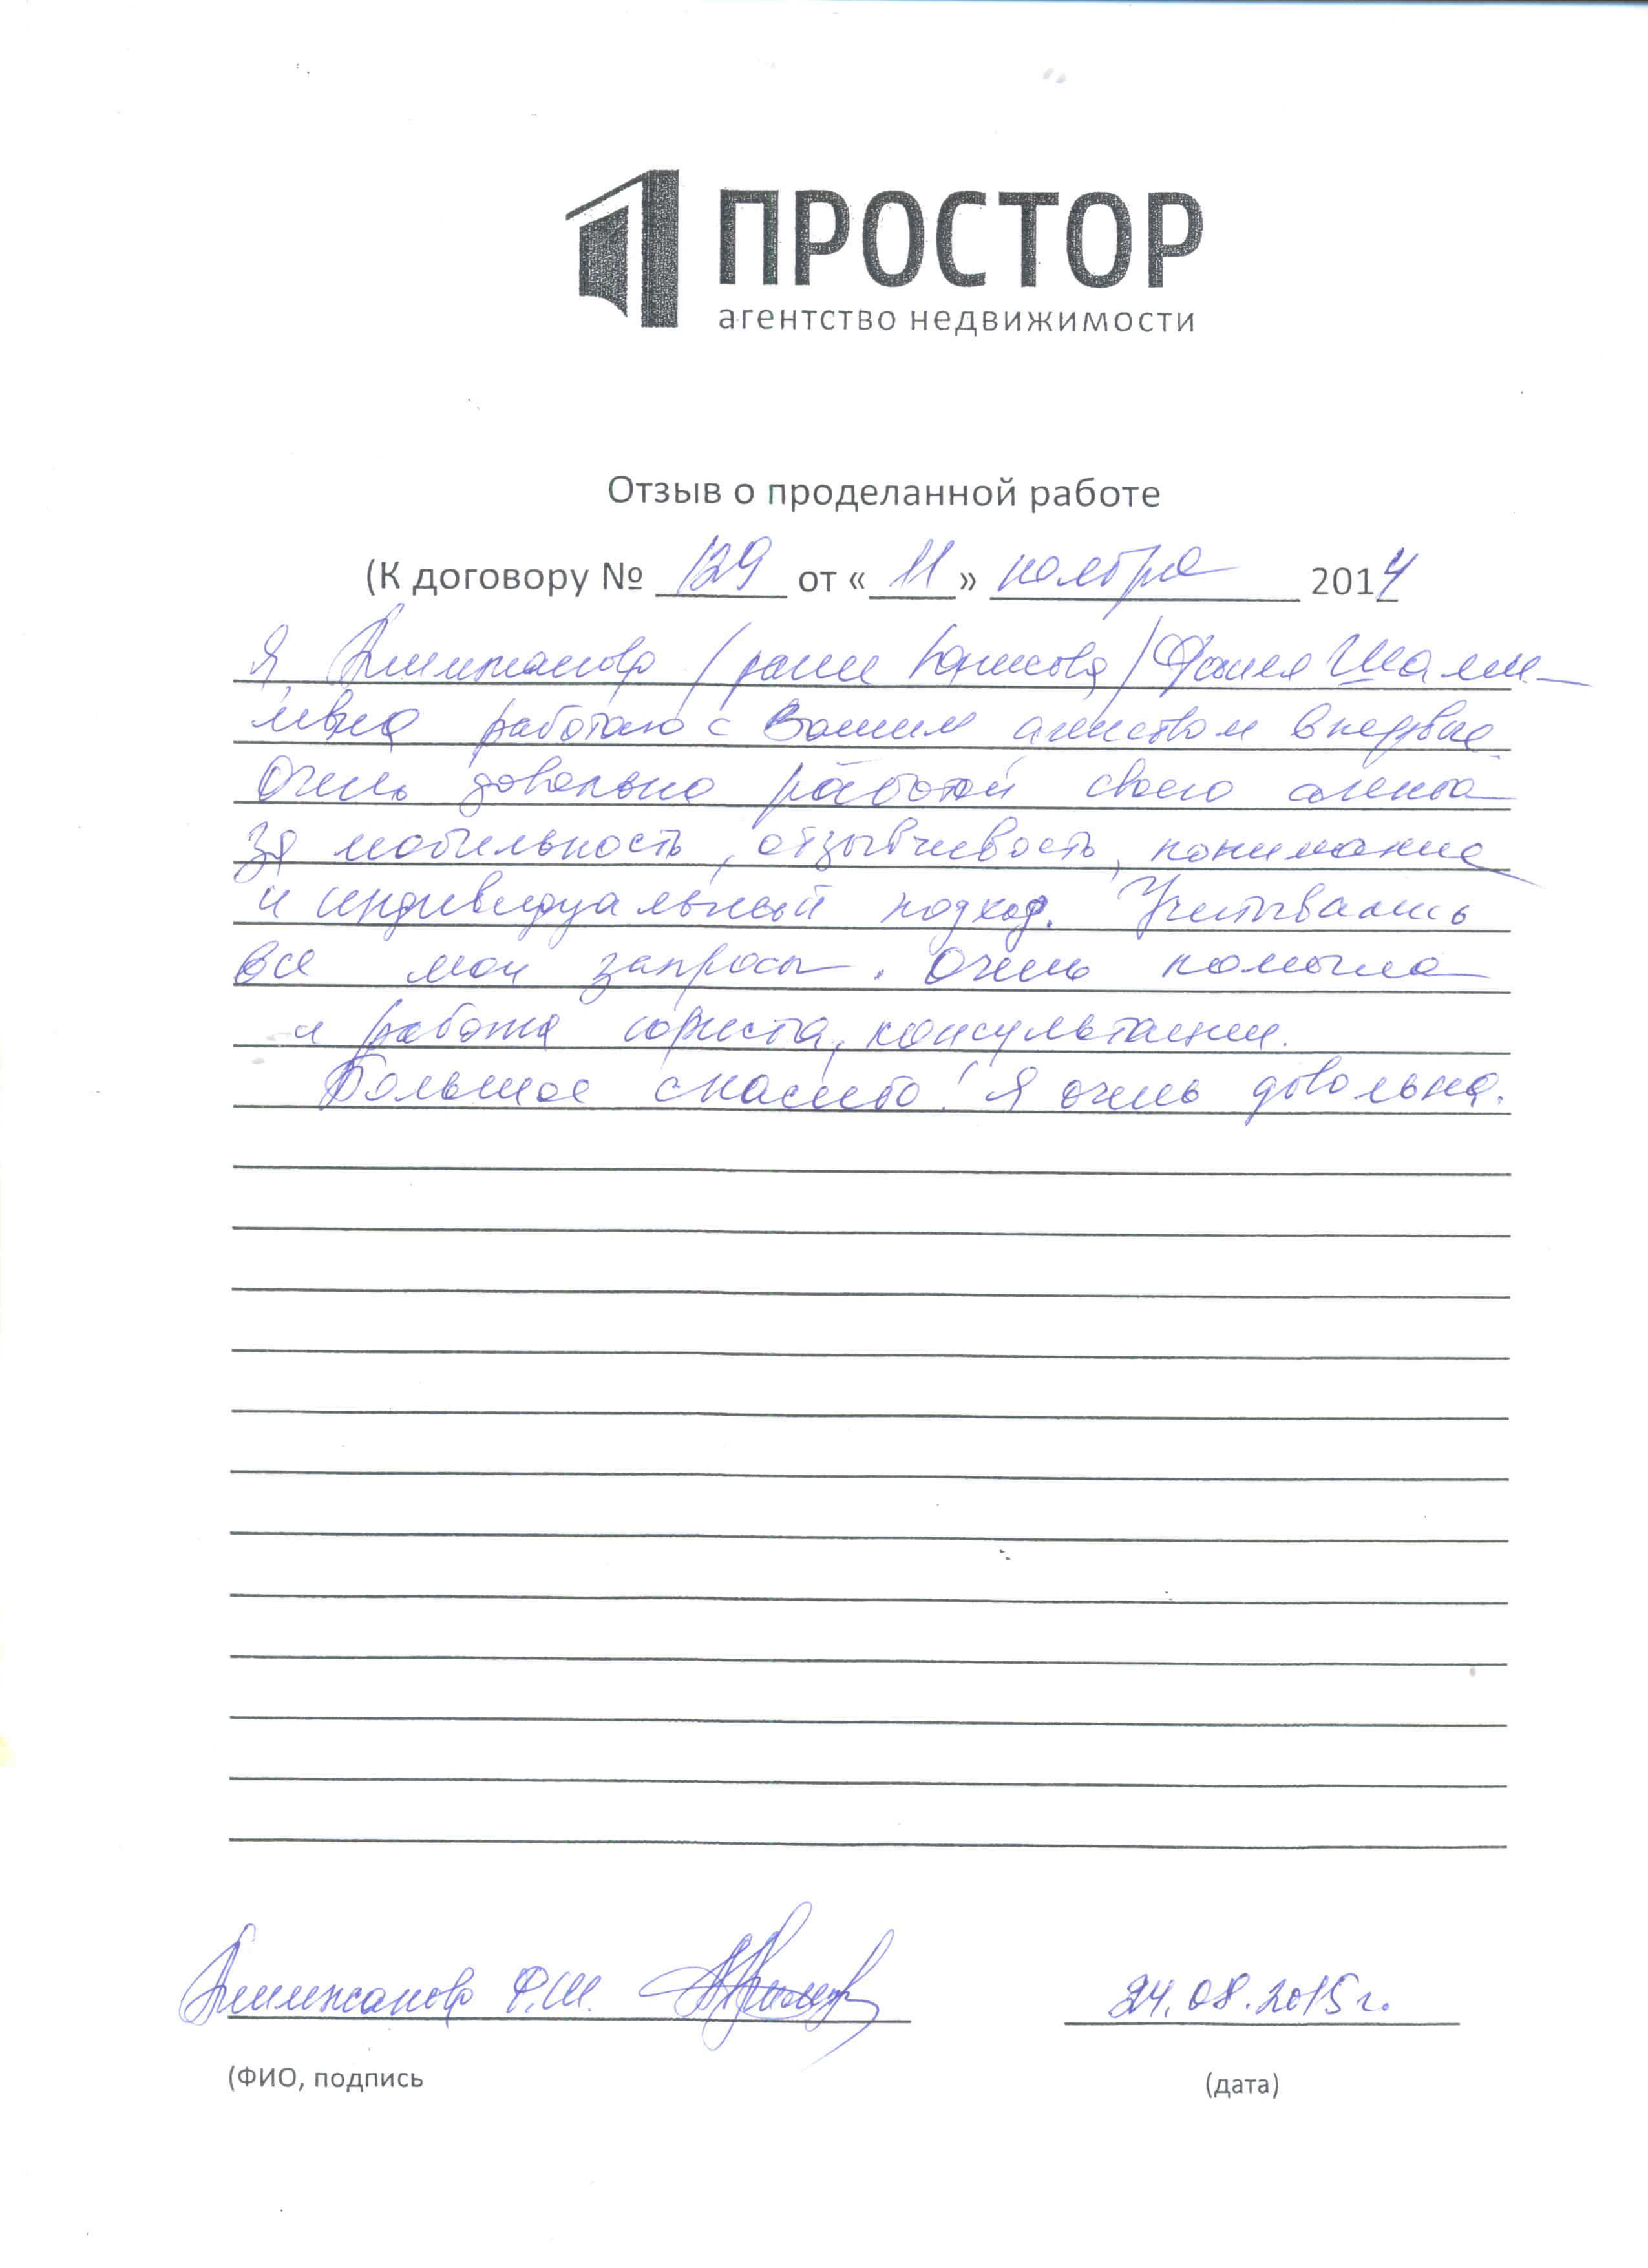 ПРОСТОР
агентство недвижимости
Отзыв о проделанной работе
(К договору № 129 от « 11 » ноября 2014
Я /ранее Юрисова/ Фания
работаю с Вашим агенством впервые
Очень довольна работой своего агента
за мобильность, отзывчивость, понимание
и индивидуальный подход. Учитывались
все мои запросы. Очень помогла
и работа юриста, консультации.
Большое спасибо! Я очень довольна.
Ф.Ш. 24.08.2015г.
(ФИО, подпись (дата)